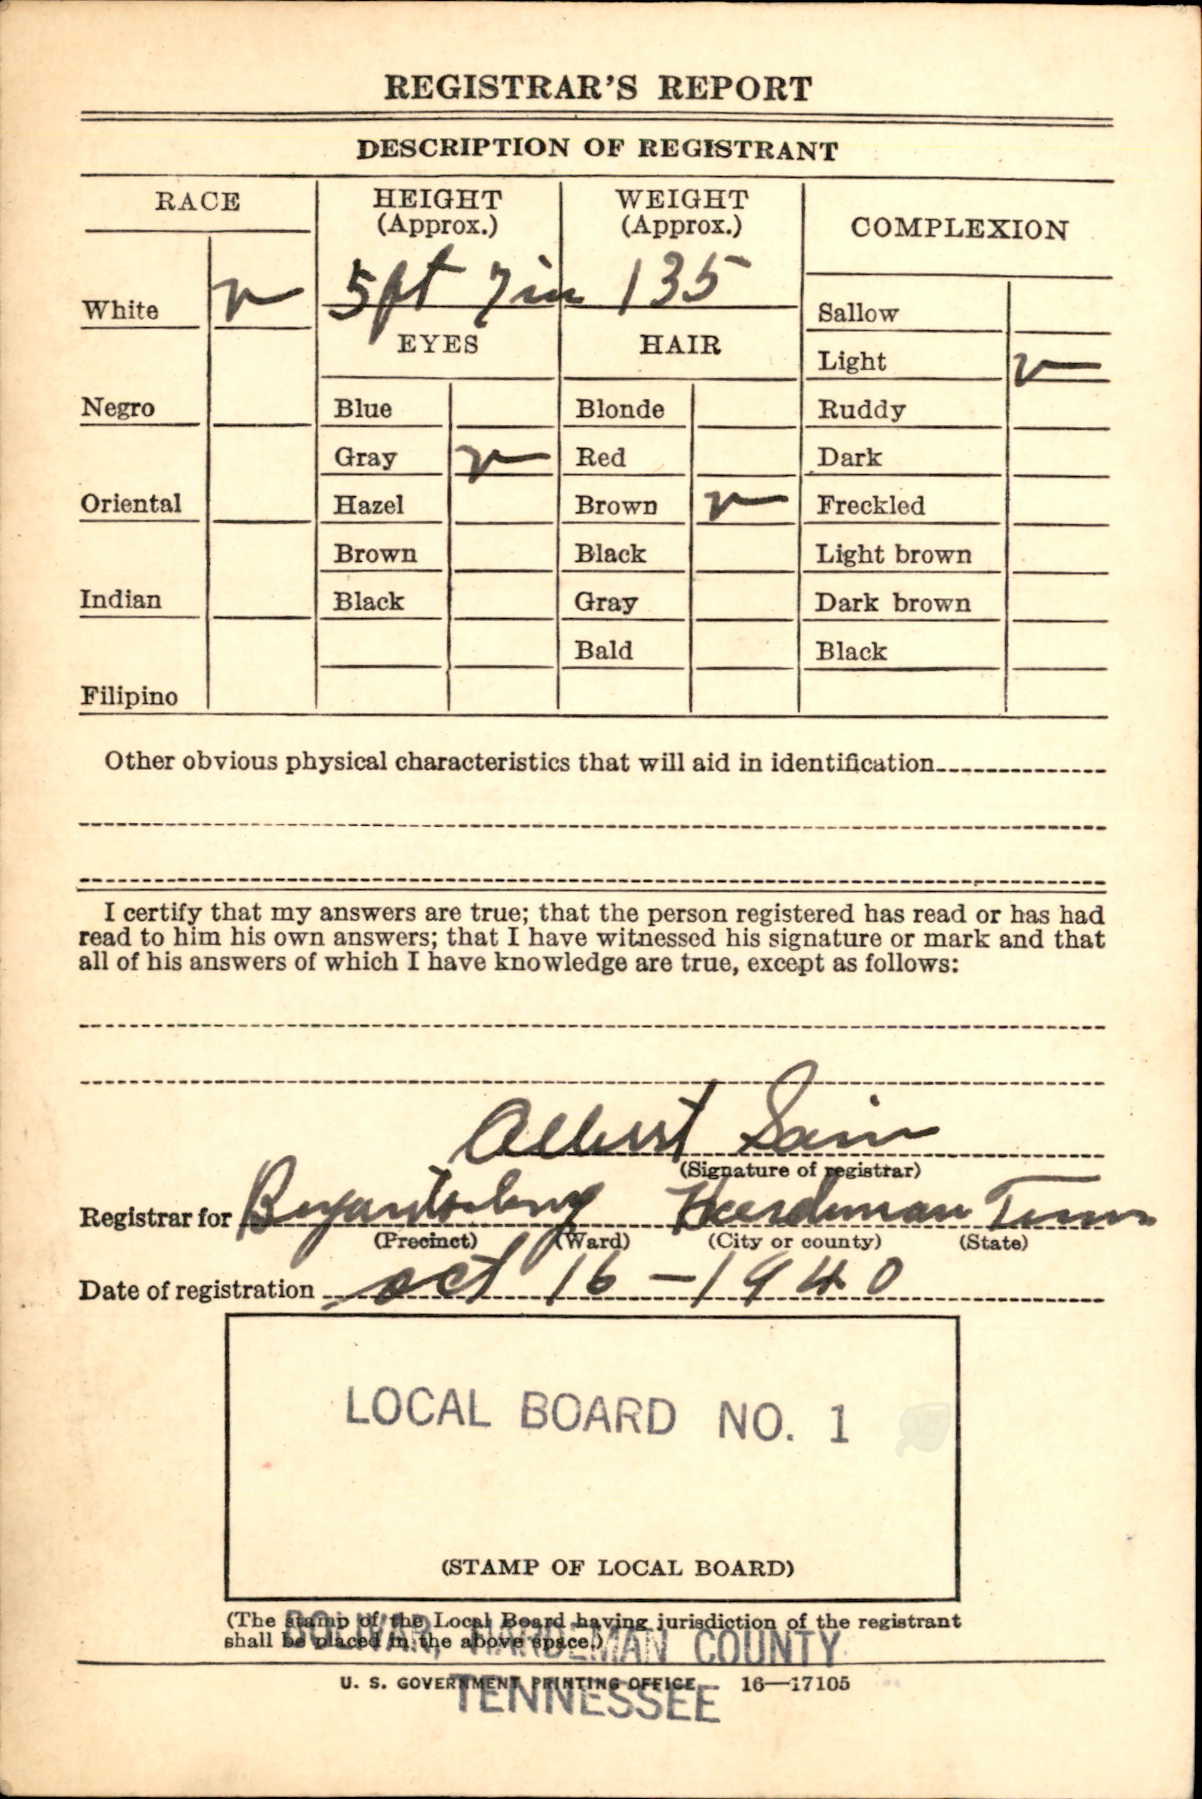 REGISTRAR'S REPORT
DESCRIPTION OF REGISTRANT
RACE
HEIGHT
(Approx.)
WEIGHT
(Approx.)
COMPLEXION
5 ft 7 in
135
White
Sallow
EYES
HAIR
Light
Negro
Blue
Blonde
Ruddy
Gray
Red
Dark
Oriental
Hazel
Brown
Freckled
Brown
Black
Light brown
Indian
Black
Gray
Dark brown
Bald
Black
Filipino
Other obvious physical characteristics that will aid in identification
I certify that my answers are true; that the person registered has read or has had
read to him his own answers; that I have witnessed his signature or mark and that
all of his answers of which I have knowledge are true, except as follows:
Albert Sain
(Signature of registrar)
Registrar for Hardeman Tenn
(Precinct) (Ward) (City or county) (State)
Date of registration Oct 16 - 1940
LOCAL BOARD NO. 1
(STAMP OF LOCAL BOARD)
(The stamp of the Local Board having jurisdiction of the registrant
shall be placed in the above space.)
BOLIVAR, HARDEMAN COUNTY
U. S. GOVERNMENT PRINTING OFFICE 16—17105
TENNESSEE